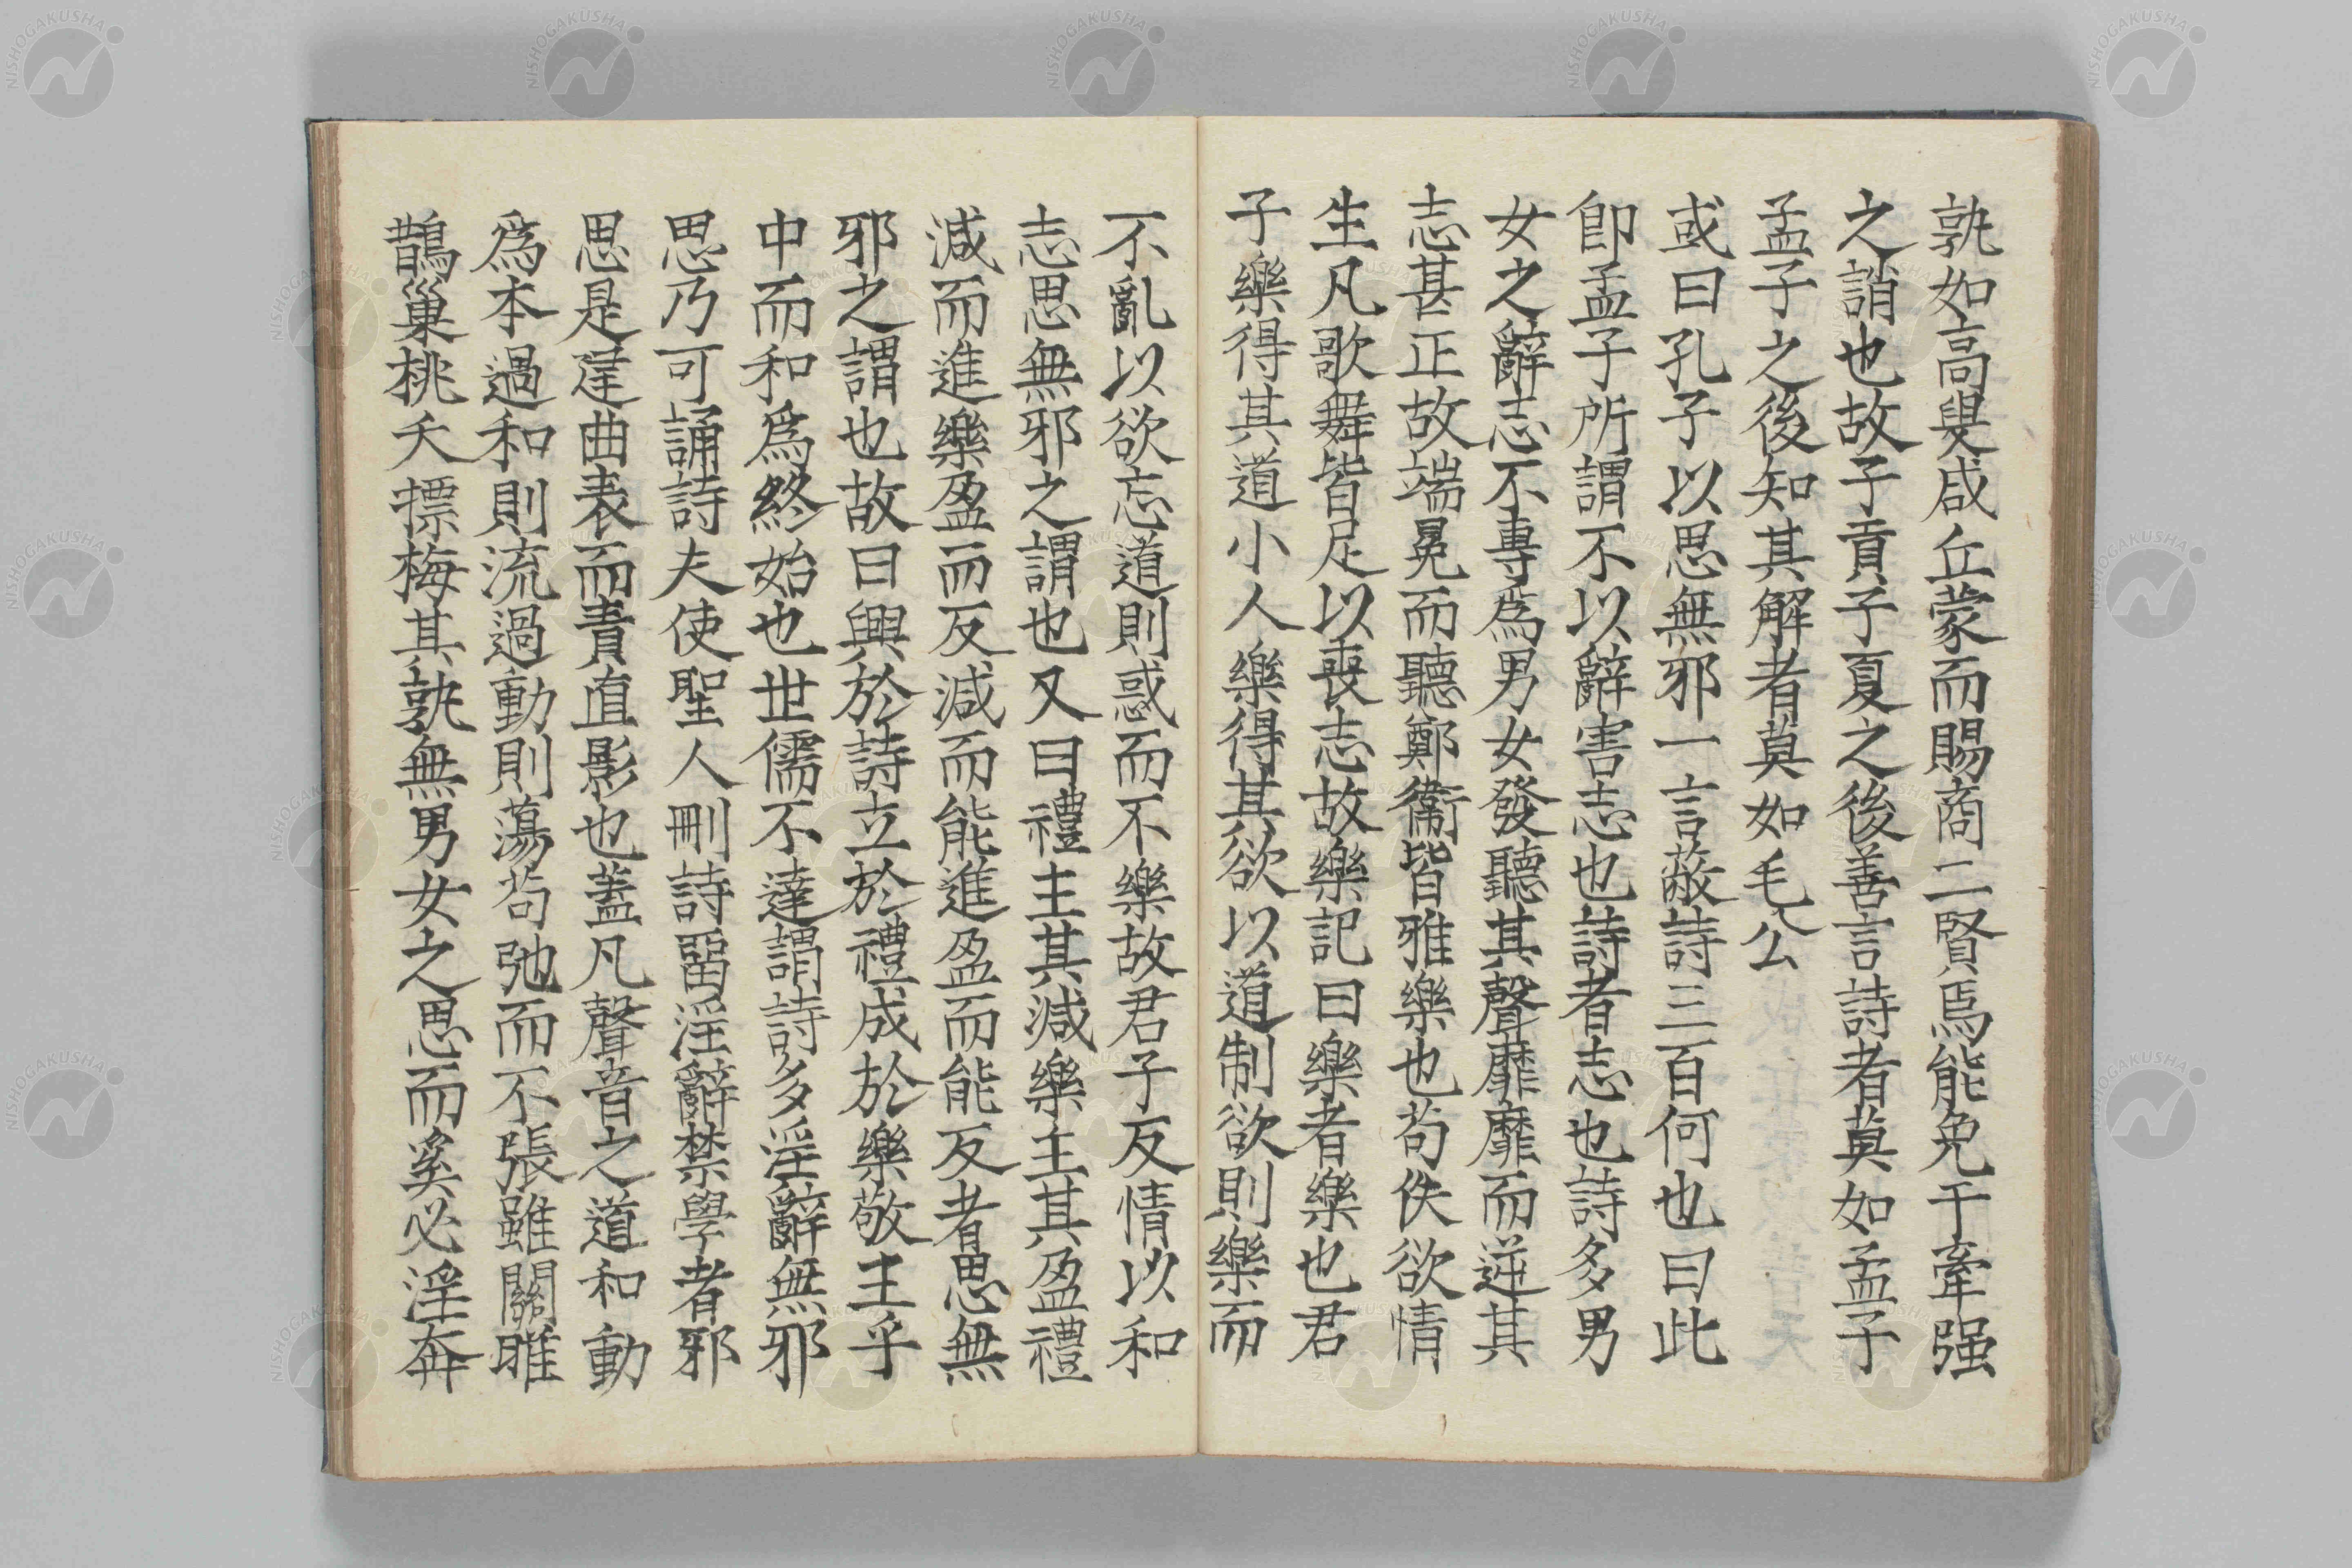 孰如高叟咸丘蒙而賜商二賢焉能免于牽强
之誚也故子貢子夏之後善言詩者莫如孟子
孟子之後知其解者莫如毛公
或曰孔子以思無邪一言蔽詩三百何也曰此
卽孟子所謂不以辭害志也詩者志也詩多男
女之辭志不專爲男女發聽其聲靡靡而逆其
志甚正故端冕而聽鄭衞皆雅樂也苟佚欲情
生凡歌舞皆足以喪志故樂記曰樂者樂也君
子樂得其道小人樂得其欲以道制欲則樂而
不亂以欲忘道則惑而不樂故君子反情以和
志思無邪之謂也又曰禮主其減樂主其盈禮
減而進樂盈而反減而能進盈而能反者思無
邪之謂也故曰興於詩立於禮成於樂敬主乎
中而和爲終始也世儒不達謂詩多淫辭無邪
思乃可誦詩夫使聖人刪詩畱淫辭禁學者邪
思是建曲表而責直影也蓋凡聲音之道和動
爲本過和則流過動則蕩苟弛而不張雖關雎
鵲巢桃夭摽梅其孰無男女之思而奚必淫奔
NISHOGAKUSHA